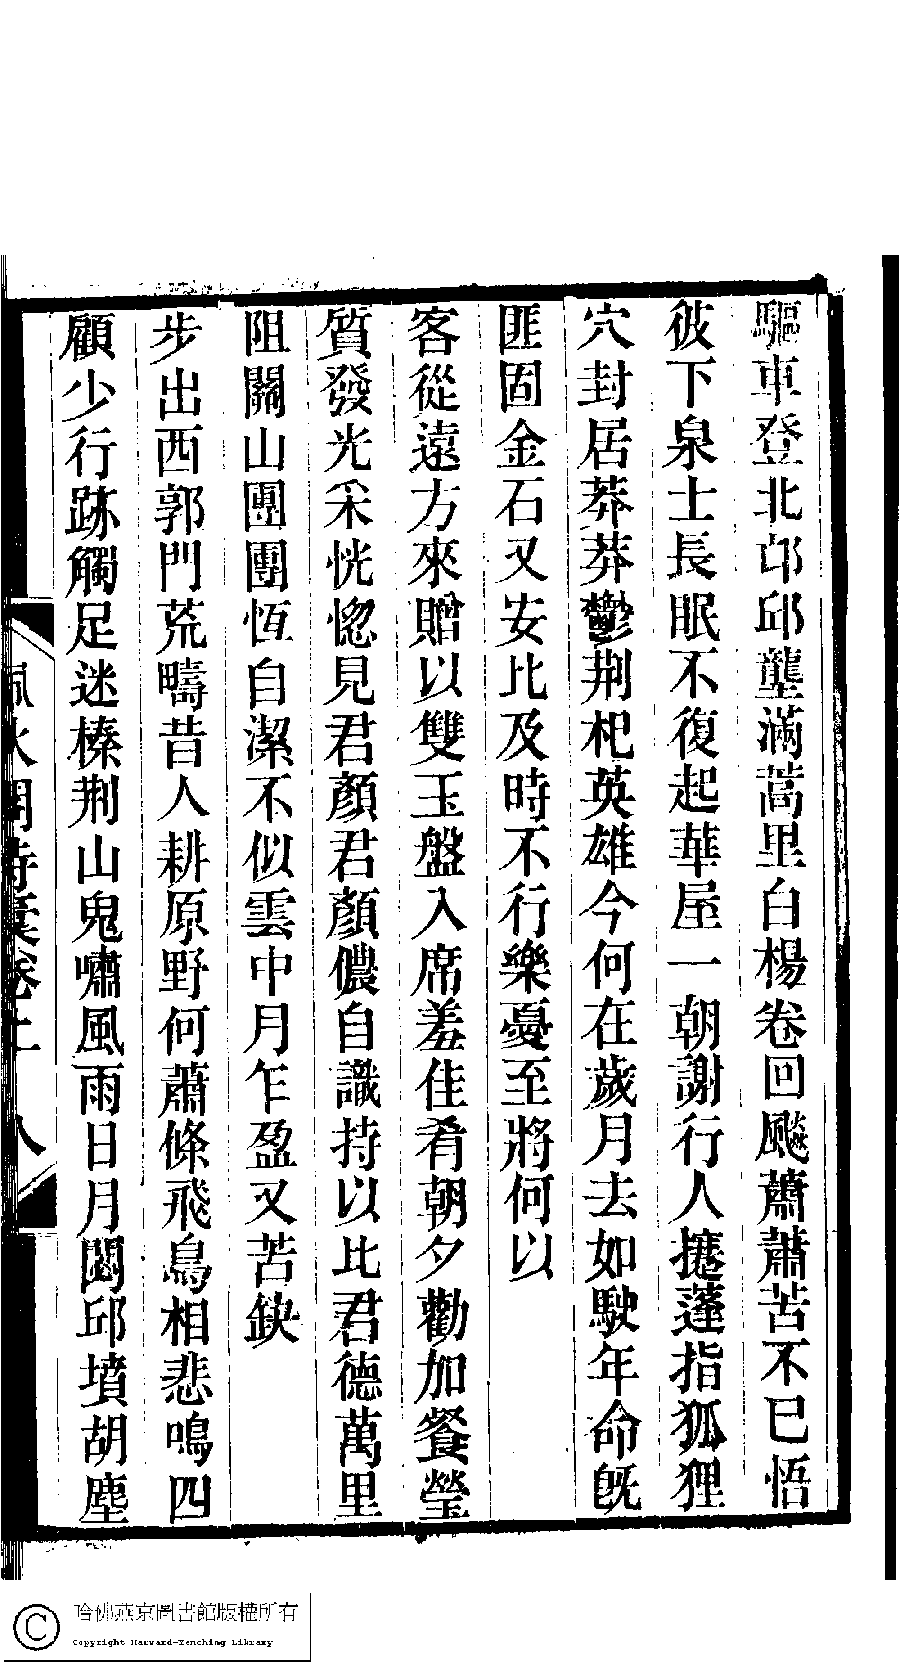 驅車登北邙邱壟滿蒿里白楊卷回飈蕭蕭苦不已悟
彼下泉士長眠不復起華屋一朝謝行人捲蓬指狐狸
穴封居莽莽鬱荆杞英雄今何在歲月去如駛年命旣
匪固金石又安比及時不行樂憂至將何以
客從遠方來贈以雙玉盤入席羞佳肴朝夕勸加餐瑩
質發光采恍惚見君顏君顏儂自識持以比君德萬里
阻關山團團恆自潔不似雲中月乍盈又苦缺
步出西郭門荒疇昔人耕原野何蕭條飛鳥相悲鳴四
顧少行跡觸足迷榛荆山鬼嘯風雨日月閟邱墳胡塵
詩囊卷上 八
哈佛燕京圖書館版權所有
Copyright Harvard-Yenching Library